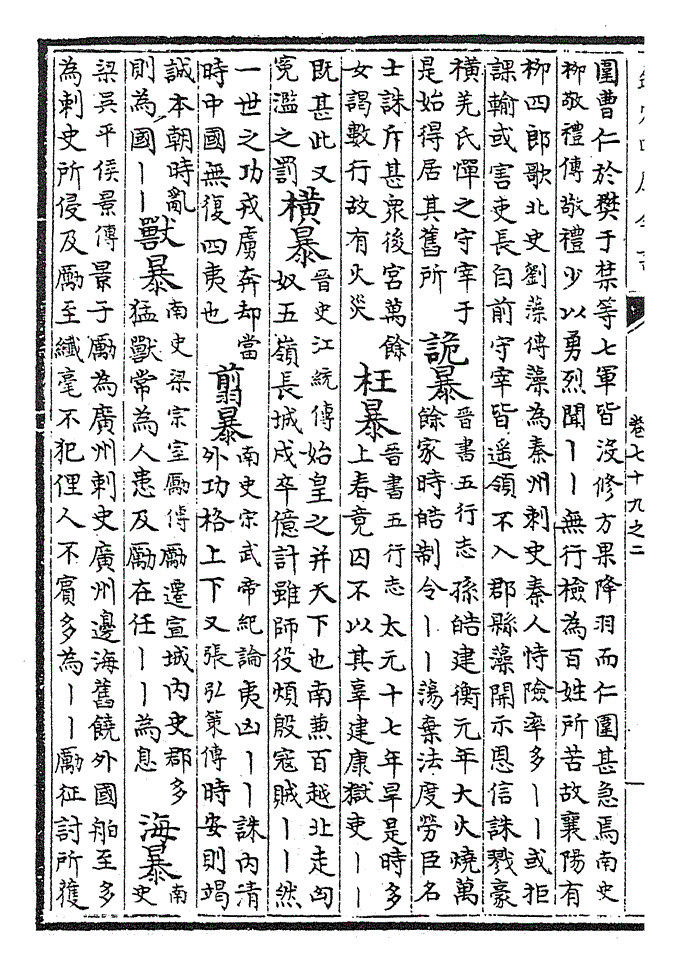 卷七十九之二
圍曹仁於樊于禁等七軍皆沒修方果降羽而仁圍甚急焉南史
柳敬禮傳敬禮少以勇烈聞丨丨無行檢為百姓所苦故襄陽有
柳四郎歌北史劉藻傳藻為秦州刺史秦人恃險率多丨丨或拒
課輸或害吏長自前守宰皆遥領不入郡縣藻開示恩信誅戮豪
橫羌氏憚之守宰于
是始得居其舊所
詭暴
晉書五行志孫皓建衡元年大火燒萬
餘家時皓制令丨丨蕩棄法度勞臣名
士誅斥甚衆後宮萬餘
女謁數行故有火災
枉暴
晉書五行志太元十七年旱是時多
上春竟囚不以其辜建康獄吏丨丨
既甚此又
寃濫之罰
橫暴
晉史江統傳始皇之并天下也南兼百越北走匈
奴五嶺長城戍卒億計雖師役煩殷寇賊丨丨然
一世之功戎虜奔却當
時中國無復四夷也
翦暴
南史宋武帝紀論夷凶丨丨誅內清
外功格上下又張弘策傳時安則竭
誠本朝時亂
則為國丨丨
獸暴
南史梁宗室勵傳勵遷宣城內史郡多
猛獸常為人患及勵在任丨丨為息
海暴
南
史
梁吳平侯景傳景子勵為廣州刺史廣州邊海舊饒外國舶至多
為刺史所侵及勵至纖毫不犯俚人不賓多為丨丨勵征討所獲